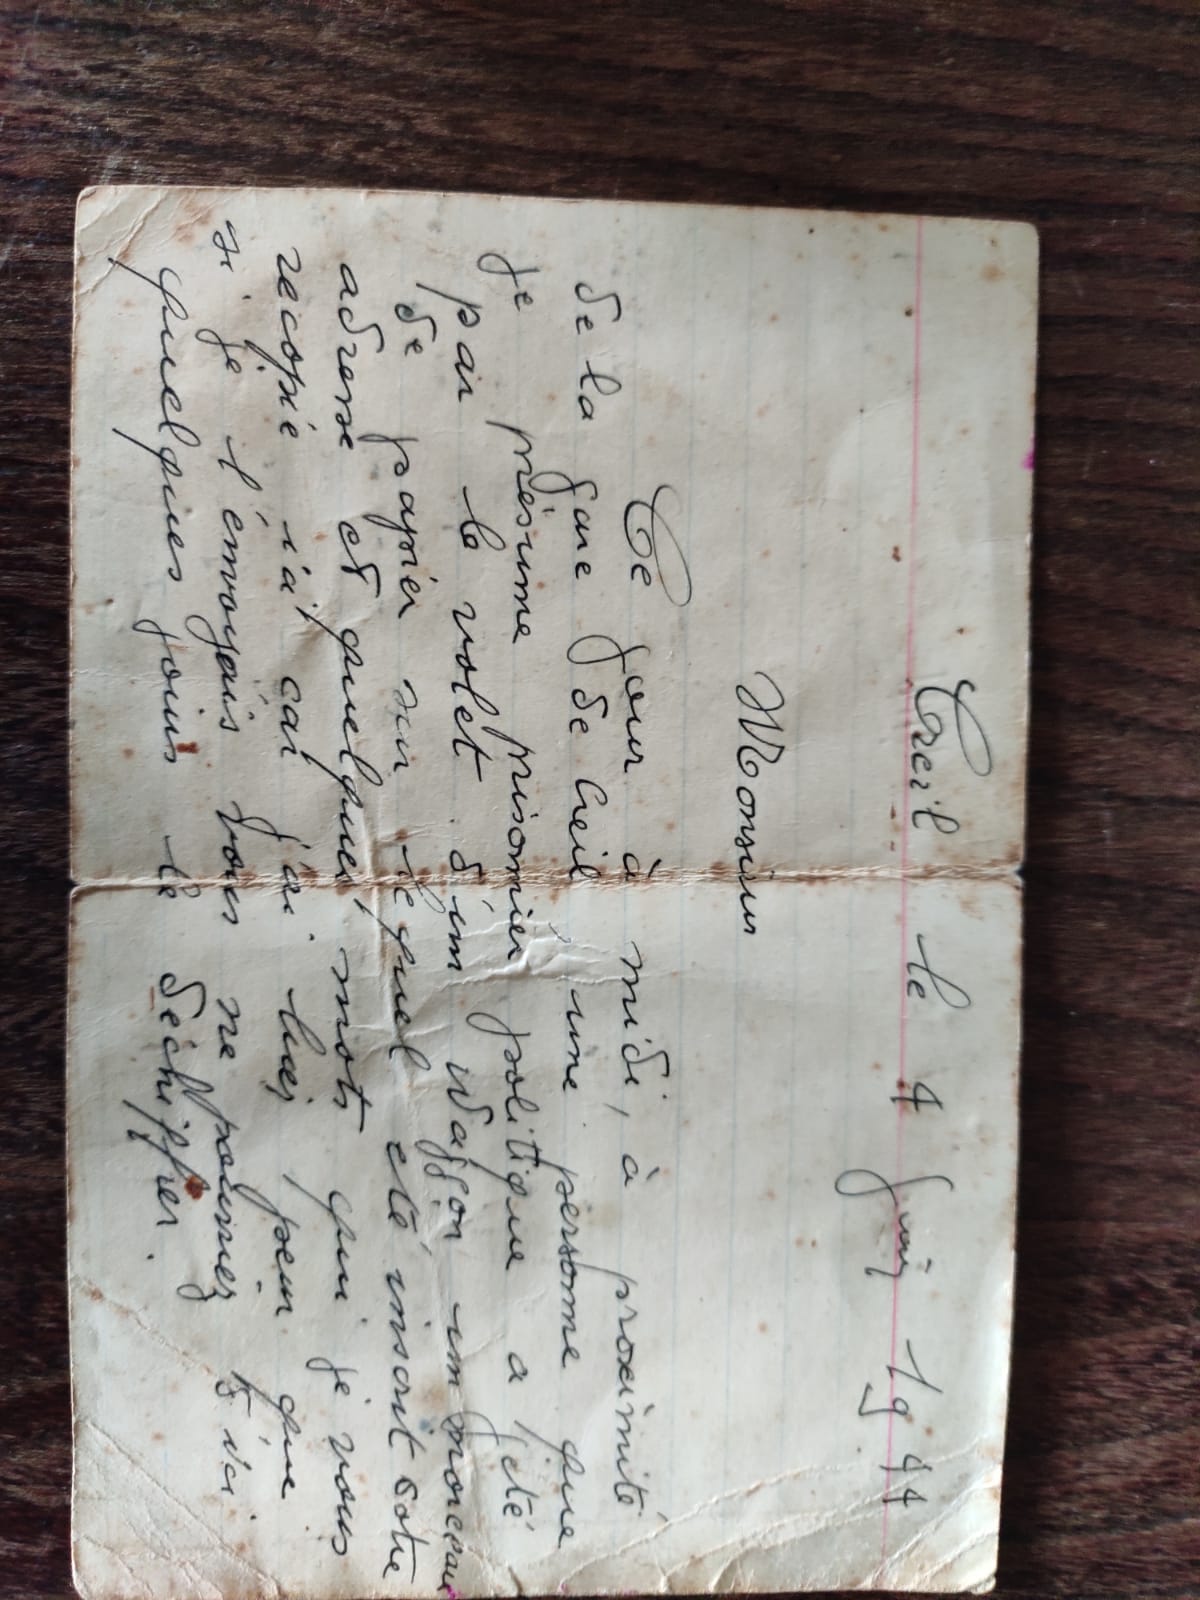 Creil le 4 Juin 1944
Monsieur
Ce jour à midi, à proximité
de la gare de Creil une persome que
je présume prisomier politique a jeté
par le volet d'un wagon un morceau
de papier sur lequel eté inscrit votre
adresse et quelques mots que je vous
recopie ici car j'ai peur que
si je l'envoyais vous ne pouriez d'ici
quelques jours le déchiffrer.